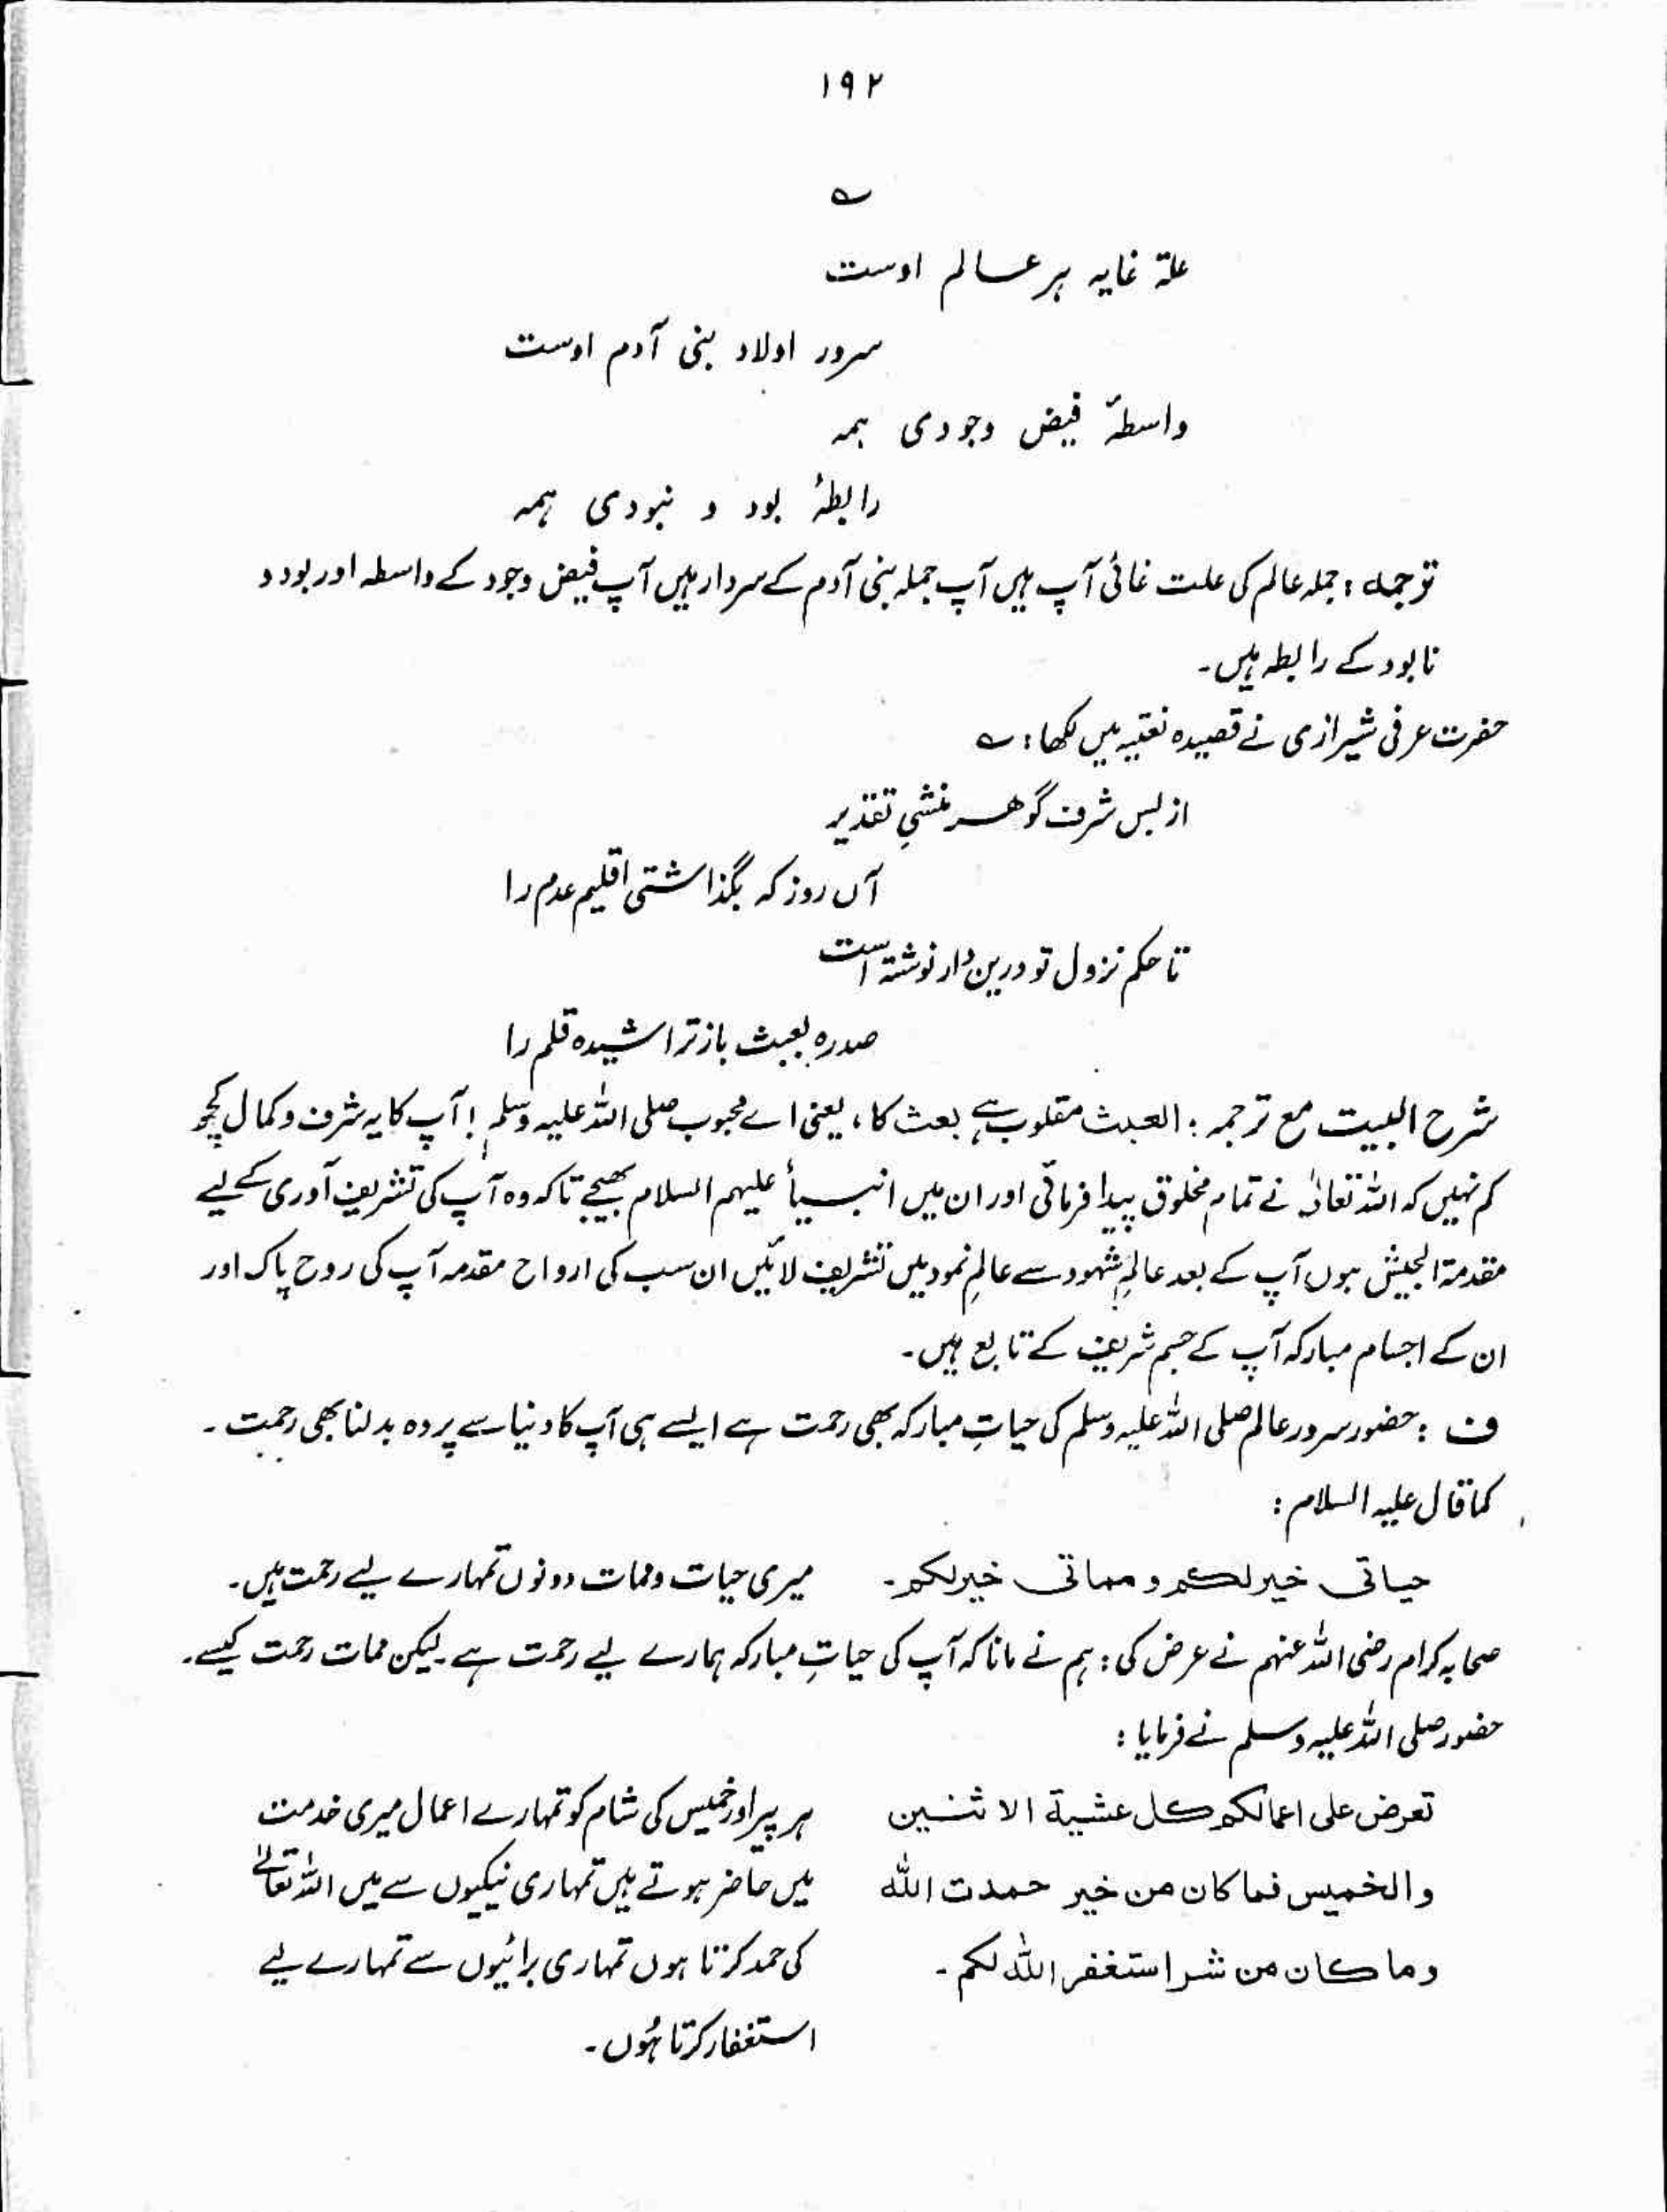 ۱۹۲
؎
علۃ غایہ ہر عالم اوست
سرور اولاد بنی آدم اوست
واسطۂ فیض وجودی ہمہ
رابطۂ بود و نبودی ہمہ
ترجمہ : جملہ عالم کی علت غائی آپ ہیں آپ جملہ بنی آدم کے سردار ہیں آپ فیض وجود کے واسطہ اور بود و
نابود کے رابطہ ہیں۔
حضرت عرفی شیرازی نے قصیدہ نعتیہ میں لکھا : ؎
از بس شرف گوہر منشیِ تقدیر
آں روز کہ بگذاشتی اقلیم عدم را
تا حکم نزول تو دریں دار نوشتہ است
صدرہ بعبث باز تراشیدہ قلم را
شرح البیت مع ترجمہ : العبث مقلوب ہے بعث کا، یعنی اے محبوب صلی اللہ علیہ وسلم ! آپ کا یہ شرف و کمال کچھ
کم نہیں کہ اللہ تعالیٰ نے تمام مخلوق پیدا فرمائی اور ان میں انبیأ علیہم السلام بھیجے تاکہ وہ آپ کی تشریف آوری کے لیے
مقدمۃ الجیش ہوں آپ کے بعد عالمِ شہود سے عالمِ نمود میں تشریف لائیں ان سب کی ارواح مقدمہ آپ کی روح پاک اور
ان کے اجسام مبارکہ آپ کے جسم شریف کے تابع ہیں۔
ف : حضور سرور عالم صلی اللہ علیہ وسلم کی حیاتِ مبارکہ بھی رحمت ہے ایسے ہی آپ کا دنیا سے پردہ بدلنا بھی رحمت ۔
کما قال علیہ السلام :
حیاتی خیر لکم و مماتی خیر لکم۔ میری حیات و ممات دونوں تمہارے لیے رحمت ہیں۔
صحابہ کرام رضی اللہ عنہم نے عرض کی : ہم نے مانا کہ آپ کی حیاتِ مبارکہ ہمارے لیے رحمت ہے ۔ لیکن ممات رحمت کیسے۔
حضور صلی اللہ علیہ وسلم نے فرمایا :
تعرض علی اعمالکم کل عشیۃ الاثنین
والخمیس فما کان من خیر حمدت اللہ
وما کان من شر استغفر اللہ لکم ۔
ہر پیر اور خمیس کی شام کو تمہارے اعمال میری خدمت
میں حاضر ہوتے ہیں تمہاری نیکیوں سے میں اللہ تعالیٰ
کی حمد کرتا ہوں تمہاری برائیوں سے تمہارے لیے
استغفار کرتا ہُوں ۔